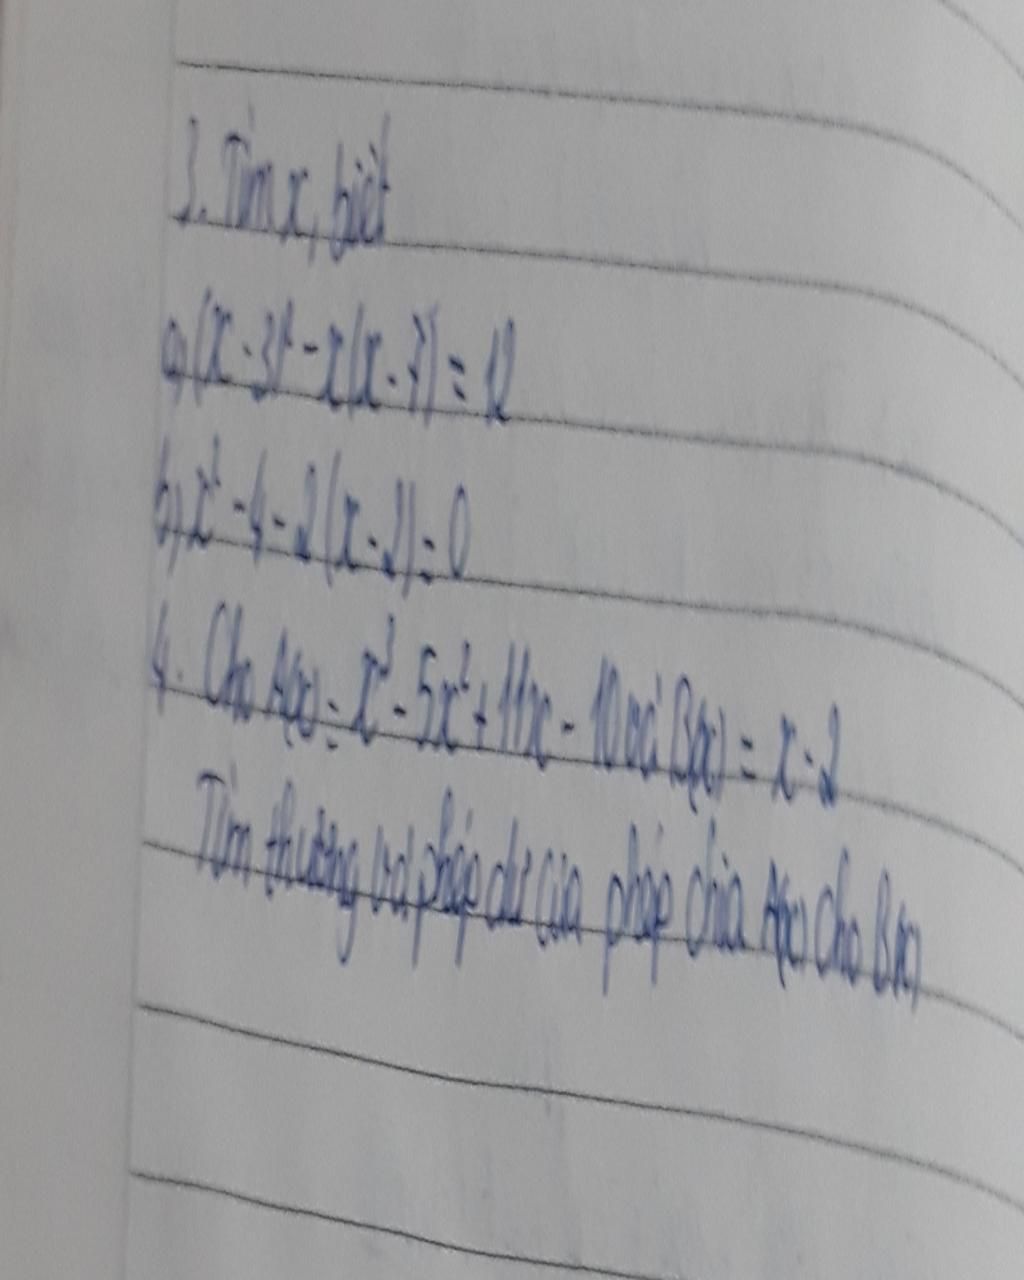 3. Tìm x, biết
a) (x - 3)² - x(x - 7) = 12
b) x² - 4 - 2(x - 2) = 0
4. Cho A(x) = x³ - 5x² + 11x - 10 và B(x) = x - 2
Tìm thương và phép dư của phép chia A(x) cho B(x)